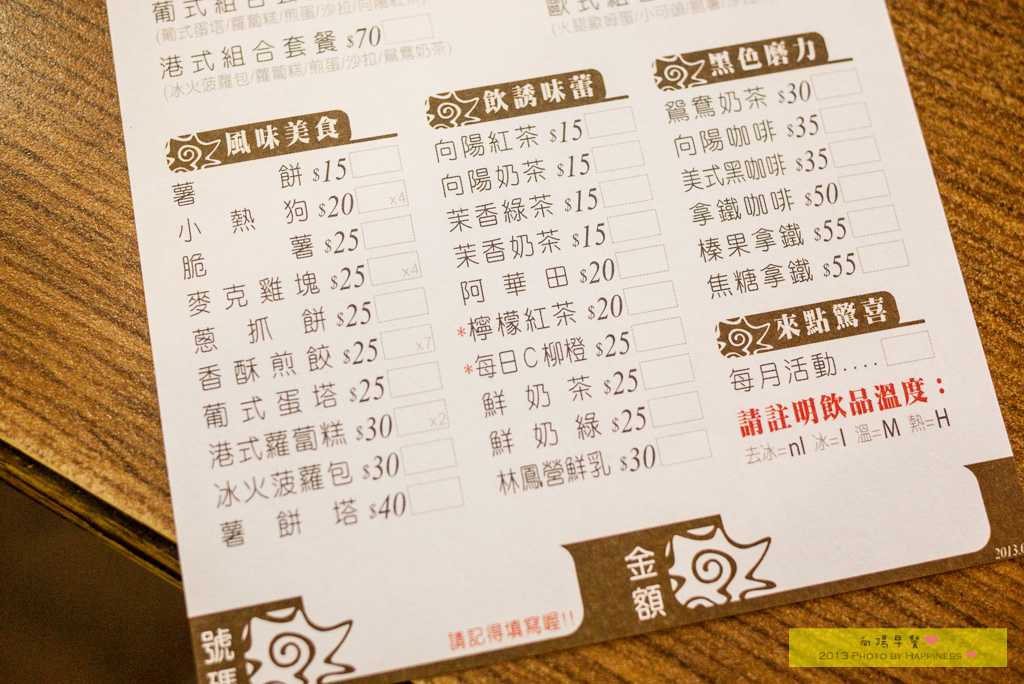 葡式組合套餐
(葡式蛋塔/蘿蔔糕/煎蛋/沙拉/向陽紅茶)
港式組合套餐 $70
(冰火菠蘿包/蘿蔔糕/煎蛋/沙拉/鴛鴦奶茶)
風味美食
薯餅 $15
小熱狗 $20 x4
脆薯 $25
麥克雞塊 $25 x4
蔥抓餅 $25
香酥煎餃 $25 x7
葡式蛋塔 $25
港式蘿蔔糕 $30 x2
冰火菠蘿包 $30
薯餅塔 $40
飲誘味蕾
向陽紅茶 $15
向陽奶茶 $15
茉香綠茶 $15
茉香奶茶 $15
阿華田 $20
*檸檬紅茶 $20
*每日C柳橙 $25
鮮奶茶 $25
鮮奶綠 $25
林鳳營鮮乳 $30
黑色磨力
鴛鴦奶茶 $30
向陽咖啡 $35
美式黑咖啡 $35
拿鐵咖啡 $50
榛果拿鐵 $55
焦糖拿鐵 $55
來點驚喜
每月活動....
請註明飲品溫度：
去冰=nI 冰=I 溫=M 熱=H
號碼
請記得填寫喔!!
金額
2013.0
向陽早餐
2013 Photo by Happiness